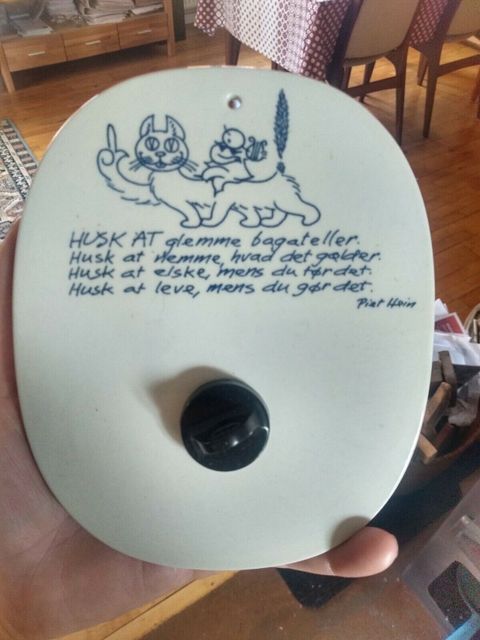 HUSK AT glemme bagateller.
Husk at nemme, hvad det gælder.
Husk at elske, mens du tør det.
Husk at leve, mens du gør det.
Piet Hein